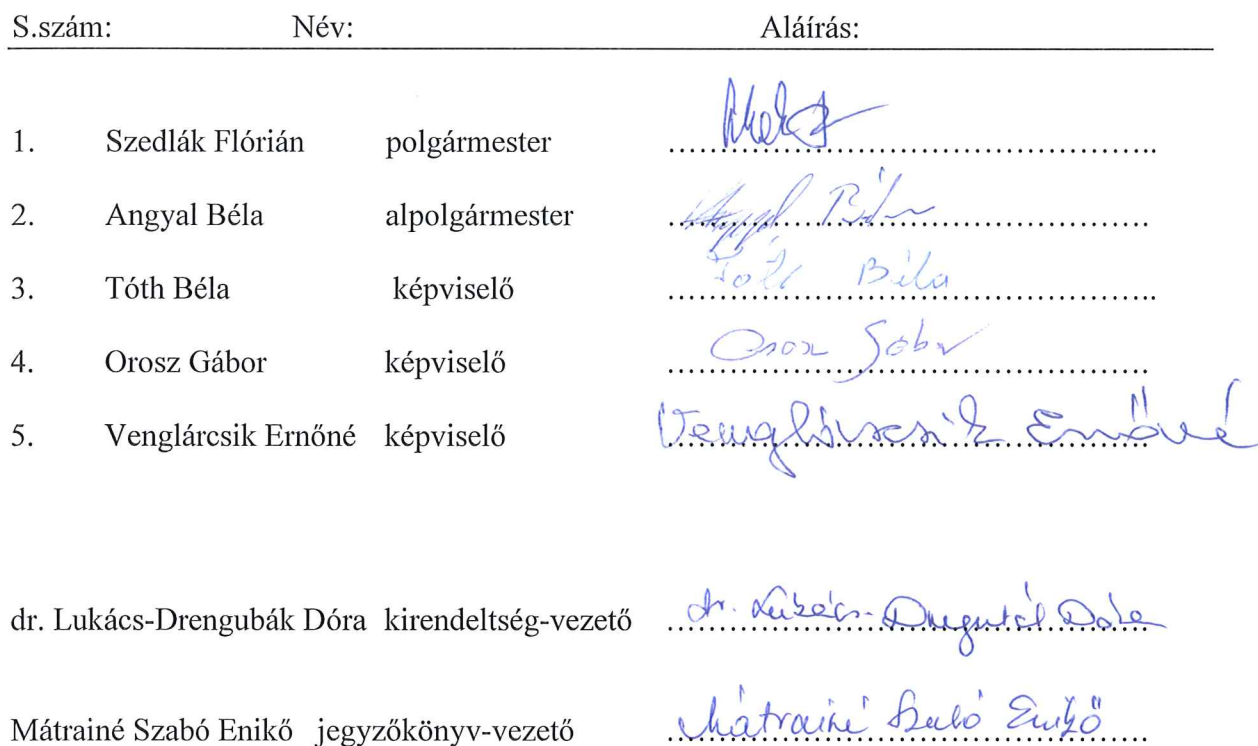 S.szám: Név: Aláírás:
1. Szedlák Flórián polgármester ..........
2. Angyal Béla alpolgármester Angyal Béla
3. Tóth Béla képviselő Tóth Béla
4. Orosz Gábor képviselő Orosz Gábor
5. Venglárcsik Ernőné képviselő Venglárcsik Ernőné
dr. Lukács-Drengubák Dóra kirendeltség-vezető dr. Lukács-Drengubák Dóra
Mátrainé Szabó Enikő jegyzőkönyv-vezető Mátrainé Szabó Enikő